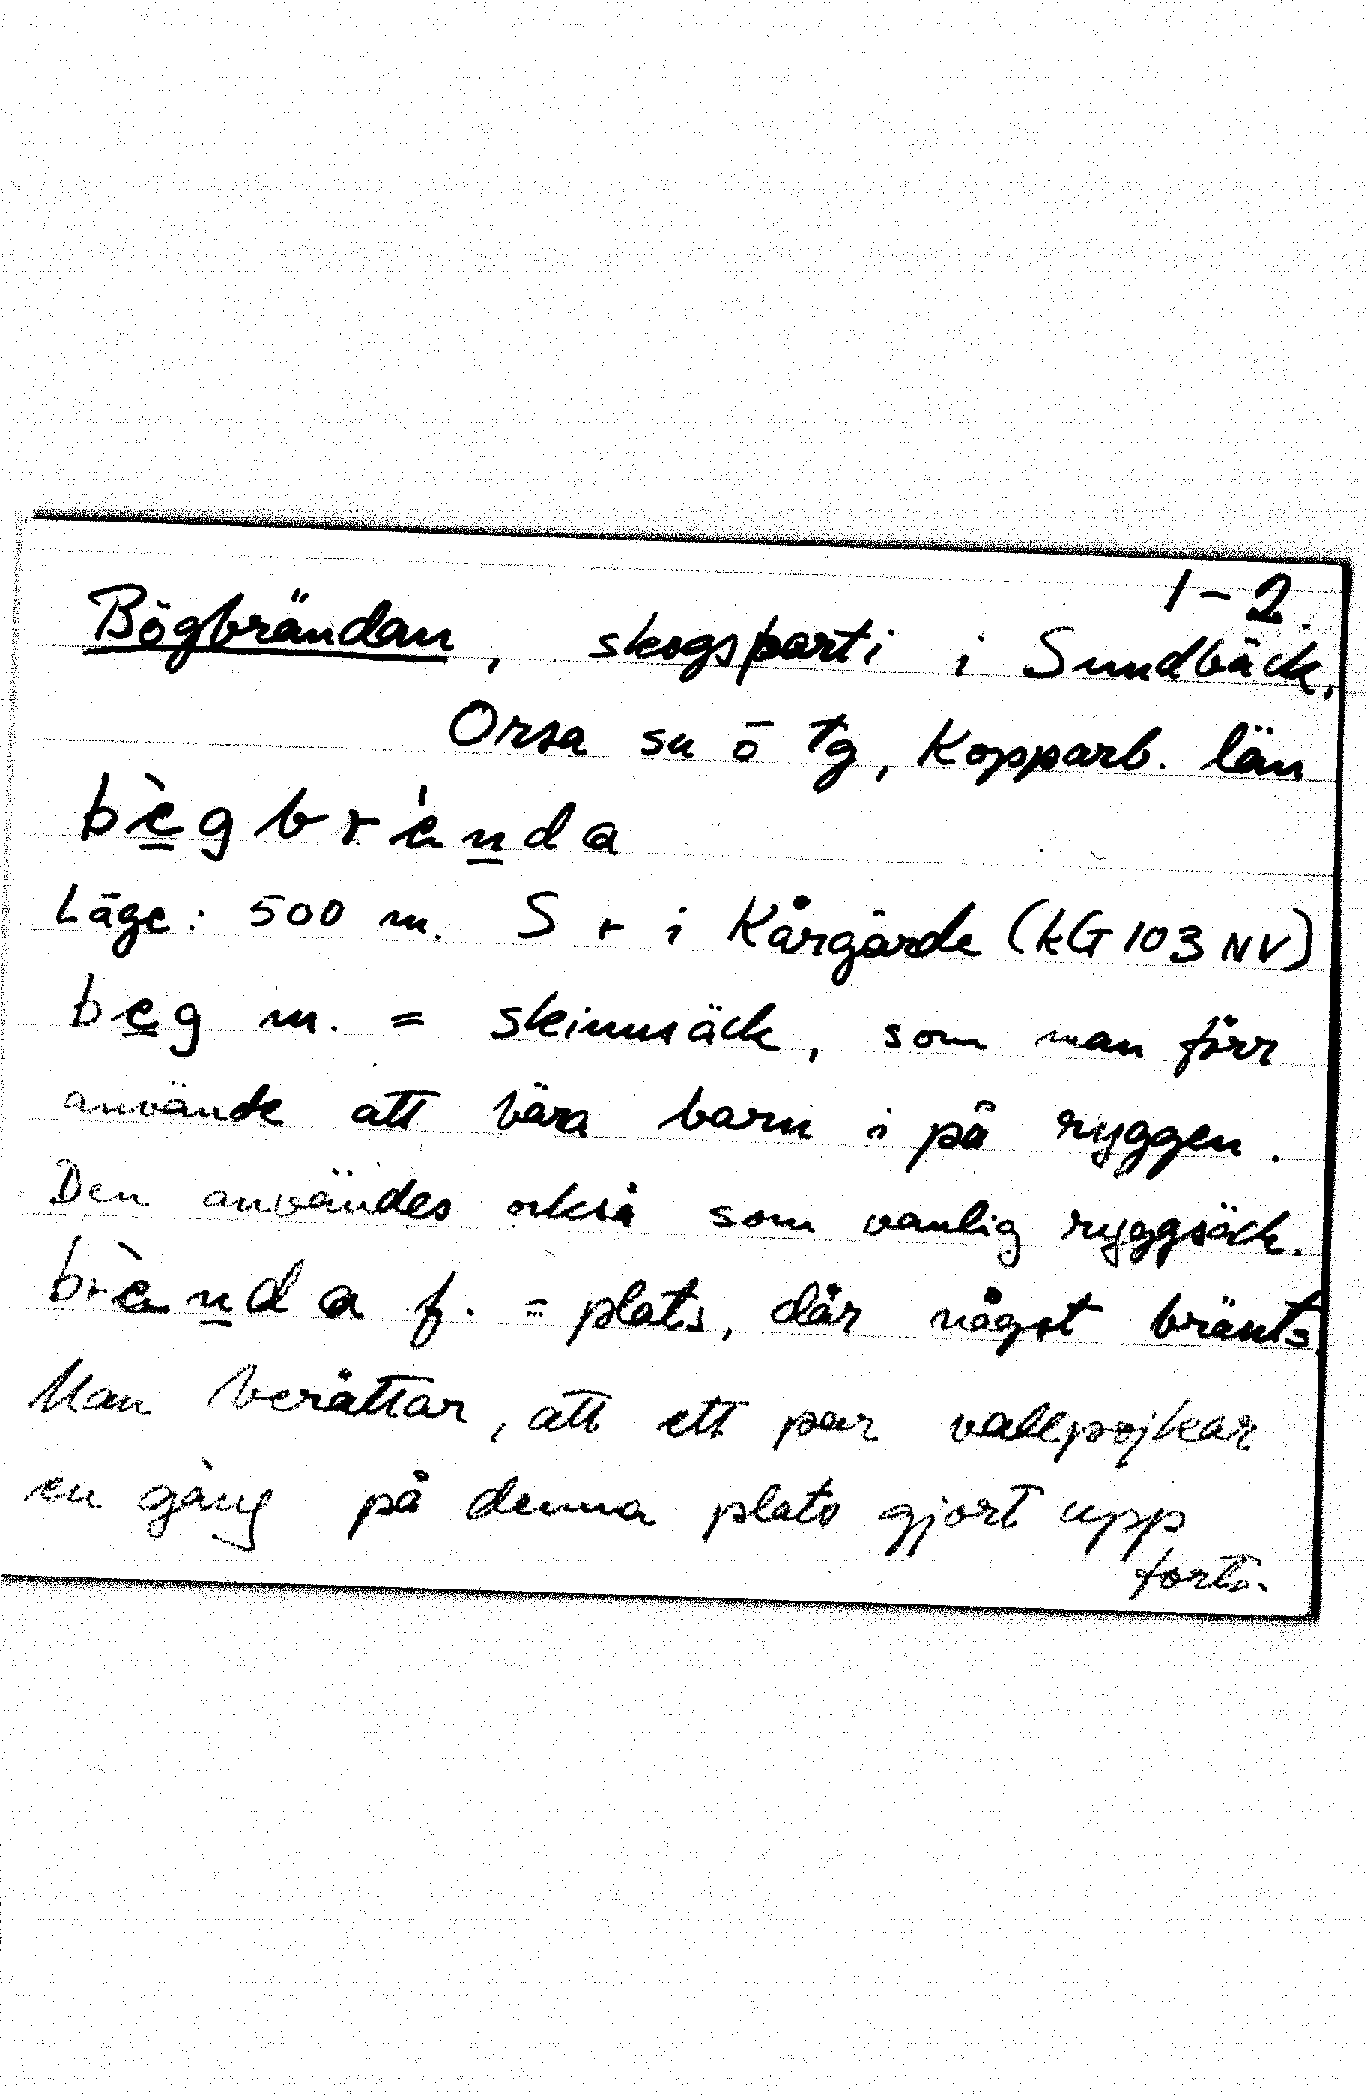 1-2.
Bögbrändan, skogsparti i Sundbäck,
Orsa sn o tg, Kopparb. län
bègbrända
Läge: 500 m. S r i Kårgärde (kG 103 NV)
beg m. = skinnsäck, som man förr
använde att bära barn i på ryggen.
Den användes också som vanlig ryggsäck.
brända f. = plats, där något bränts.
Man berättar, att ett par vallpojkar
en gång på denna plats gjort upp
forts.